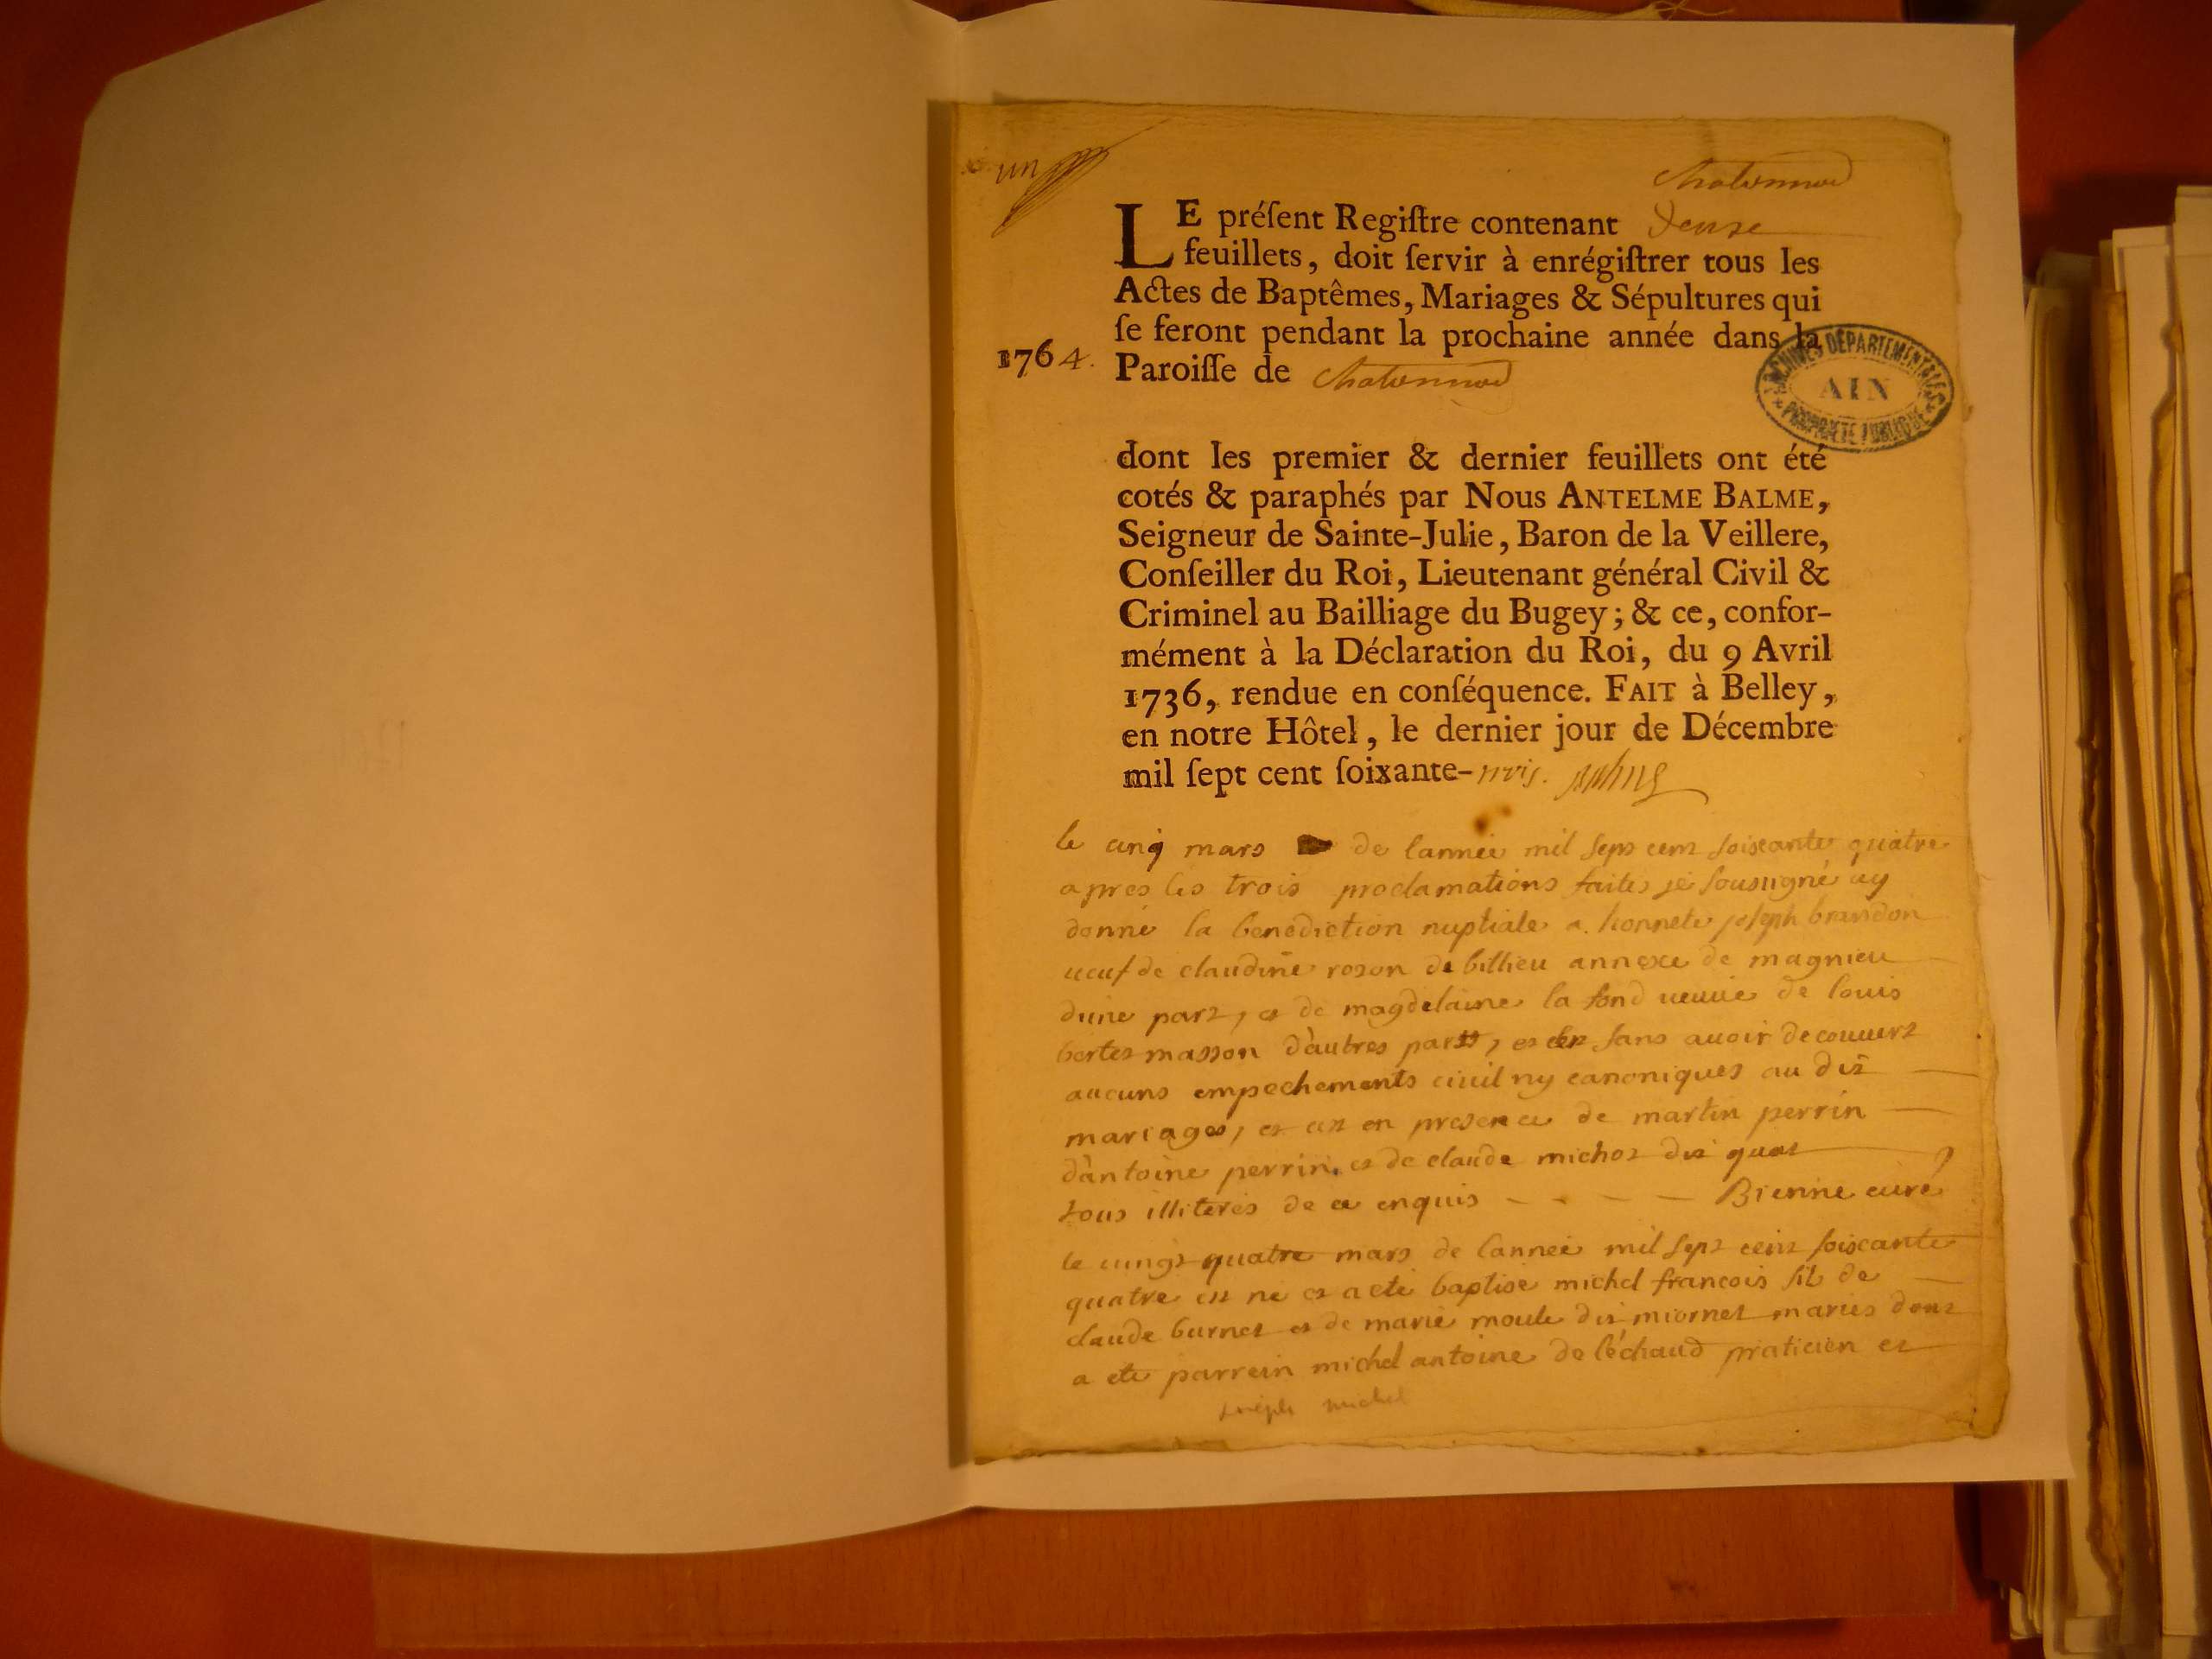 un
Chatonnod
LE préſent Regiſtre contenant douze
feuillets, doit ſervir à enrégiſtrer tous les
Actes de Baptêmes, Mariages & Sépultures qui
ſe feront pendant la prochaine année dans la
1764. Paroiſſe de Chatonnod
ARCHIVES DÉPARTEMENTALES
AIN
PROPRIÉTÉ PUBLIQUE
dont les premier & dernier feuillets ont été
cotés & paraphés par Nous ANTELME BALME,
Seigneur de Sainte-Julie, Baron de la Veillere,
Conſeiller du Roi, Lieutenant général Civil &
Criminel au Bailliage du Bugey; & ce, confor-
mément à la Déclaration du Roi, du 9 Avril
1736, rendue en conſéquence. FAIT à Belley,
en notre Hôtel, le dernier jour de Décembre
mil ſept cent ſoixante-trois. Balme
le cinq mars de lannée mil sept cent soiscante quatre
apres les trois proclamations faites je soussigné ay
donné la benediction nuptiale a honnete joseph brandon
ueuf de claudine roson de billieu annexe de magnieu
dune part, et de magdelaine la fond ueuue de louis
bertet masson dautres part, et sans auoir decouuert
aucuns empechements ciuil ny canoniques au dit
mariage, et en presence de martin perrin
dantoine perrin et de claude michot dit quat
tous illiterés de ce enquis - - - - Bienne curé
le uingt quatre mars de lannee mil sept cent soiscante
quatre est né et a eté baptisé michel francois fil de
claude burnet et de marie moule dit miornet mariés dont
a eté parrein michel antoine de léchaud praticien et
joseph michel